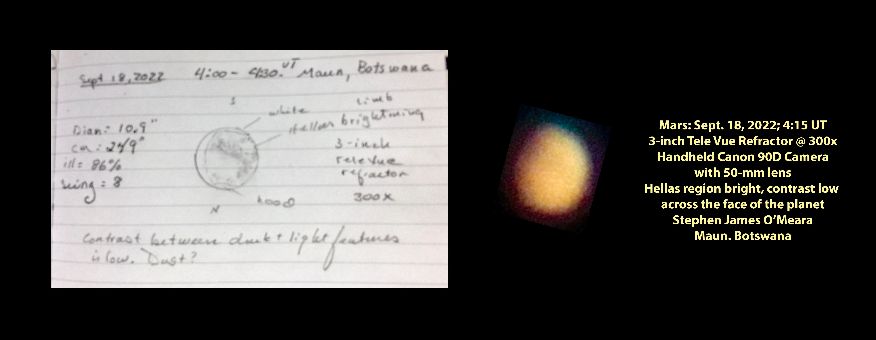 Sept 18, 2022 4:00 - 4:30 UT Maun, Botswana
S
white limb
Hellas brightning
Diam: 10.9"
CM: 249°
ill = 86%
Seeing = 8
3-inch
TeleVue
refractor
300x
N
hood
Contrast between dark + light features
is low. Dust?
Mars: Sept. 18, 2022; 4:15 UT
3-inch Tele Vue Refractor @ 300x
Handheld Canon 90D Camera
with 50-mm lens
Hellas region bright, contrast low
across the face of the planet
Stephen James O'Meara
Maun. Botswana